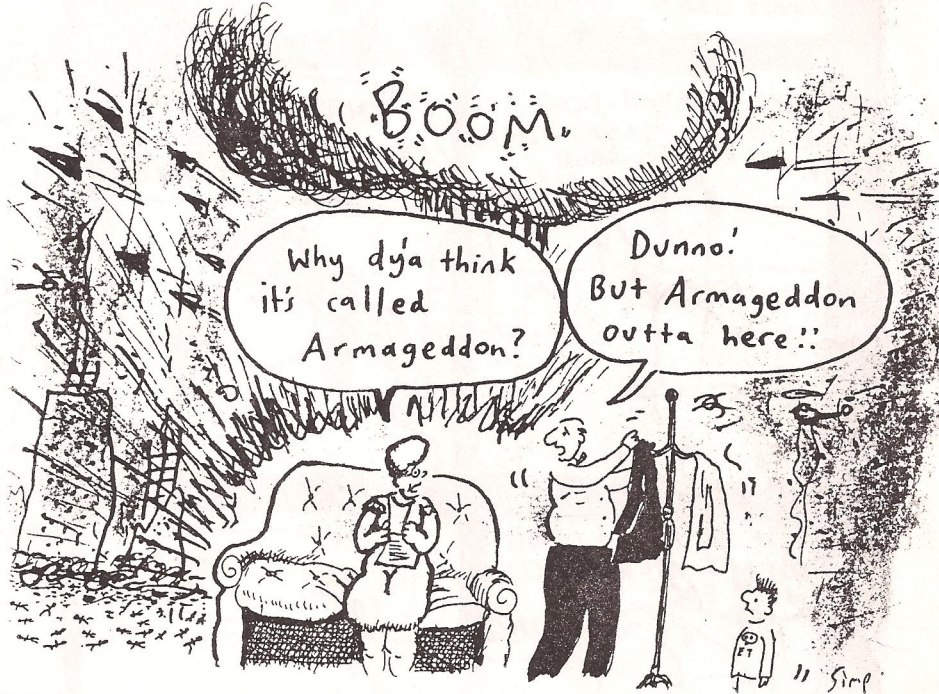 BOOM
Why d'ya think
it's called
Armageddon?
Dunno!
But Armageddon
outta here!!
ET